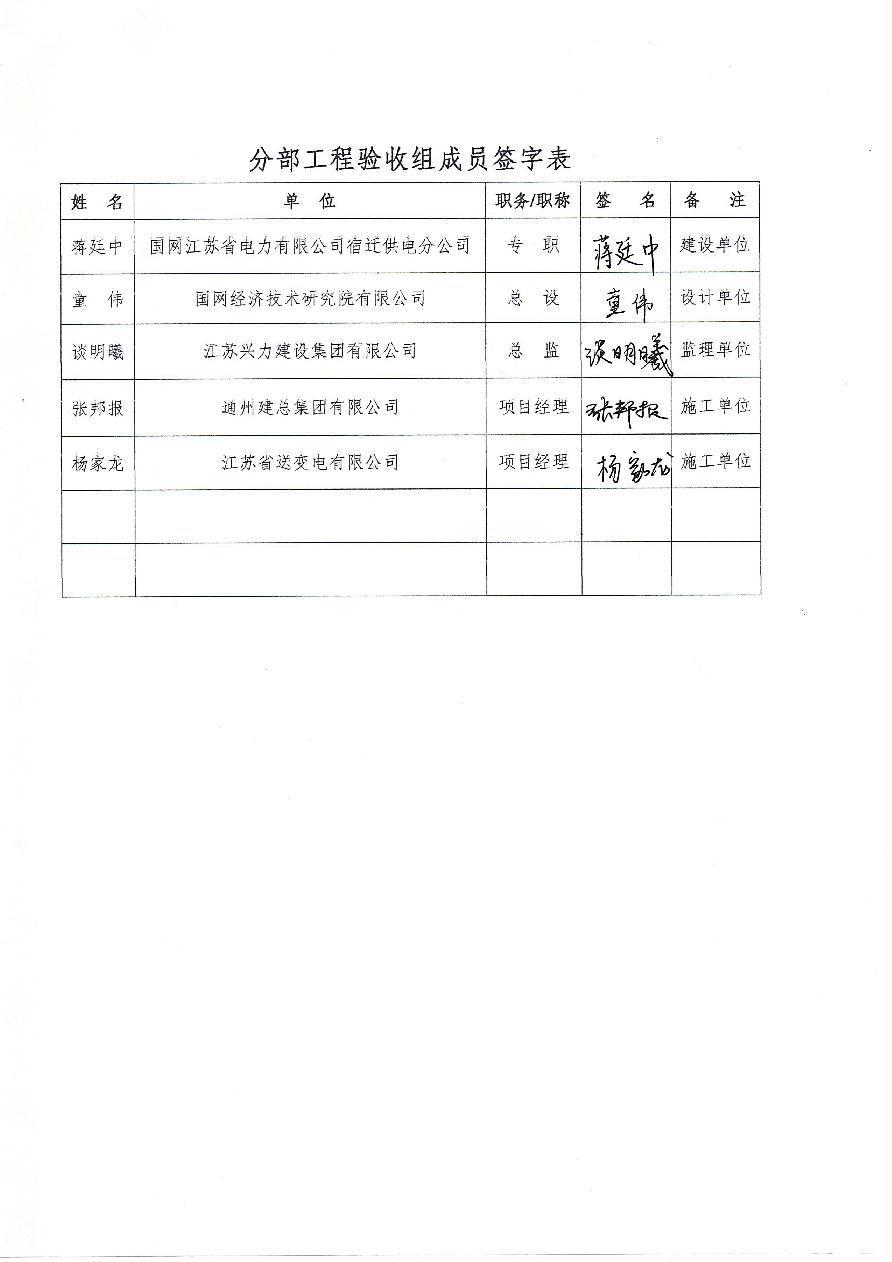 分部工程验收组成员签字表
姓 名 单 位 职务/职称 签 名 备 注
蒋廷中 国网江苏省电力有限公司宿迁供电分公司 专 职 蒋廷中 建设单位
童 伟 国网经济技术研究院有限公司 总 设 童伟 设计单位
谈明曦 江苏兴力建设集团有限公司 总 监 谈明曦 监理单位
张邦报 通州建总集团有限公司 项目经理 张邦报 施工单位
杨家龙 江苏省送变电有限公司 项目经理 杨家龙 施工单位